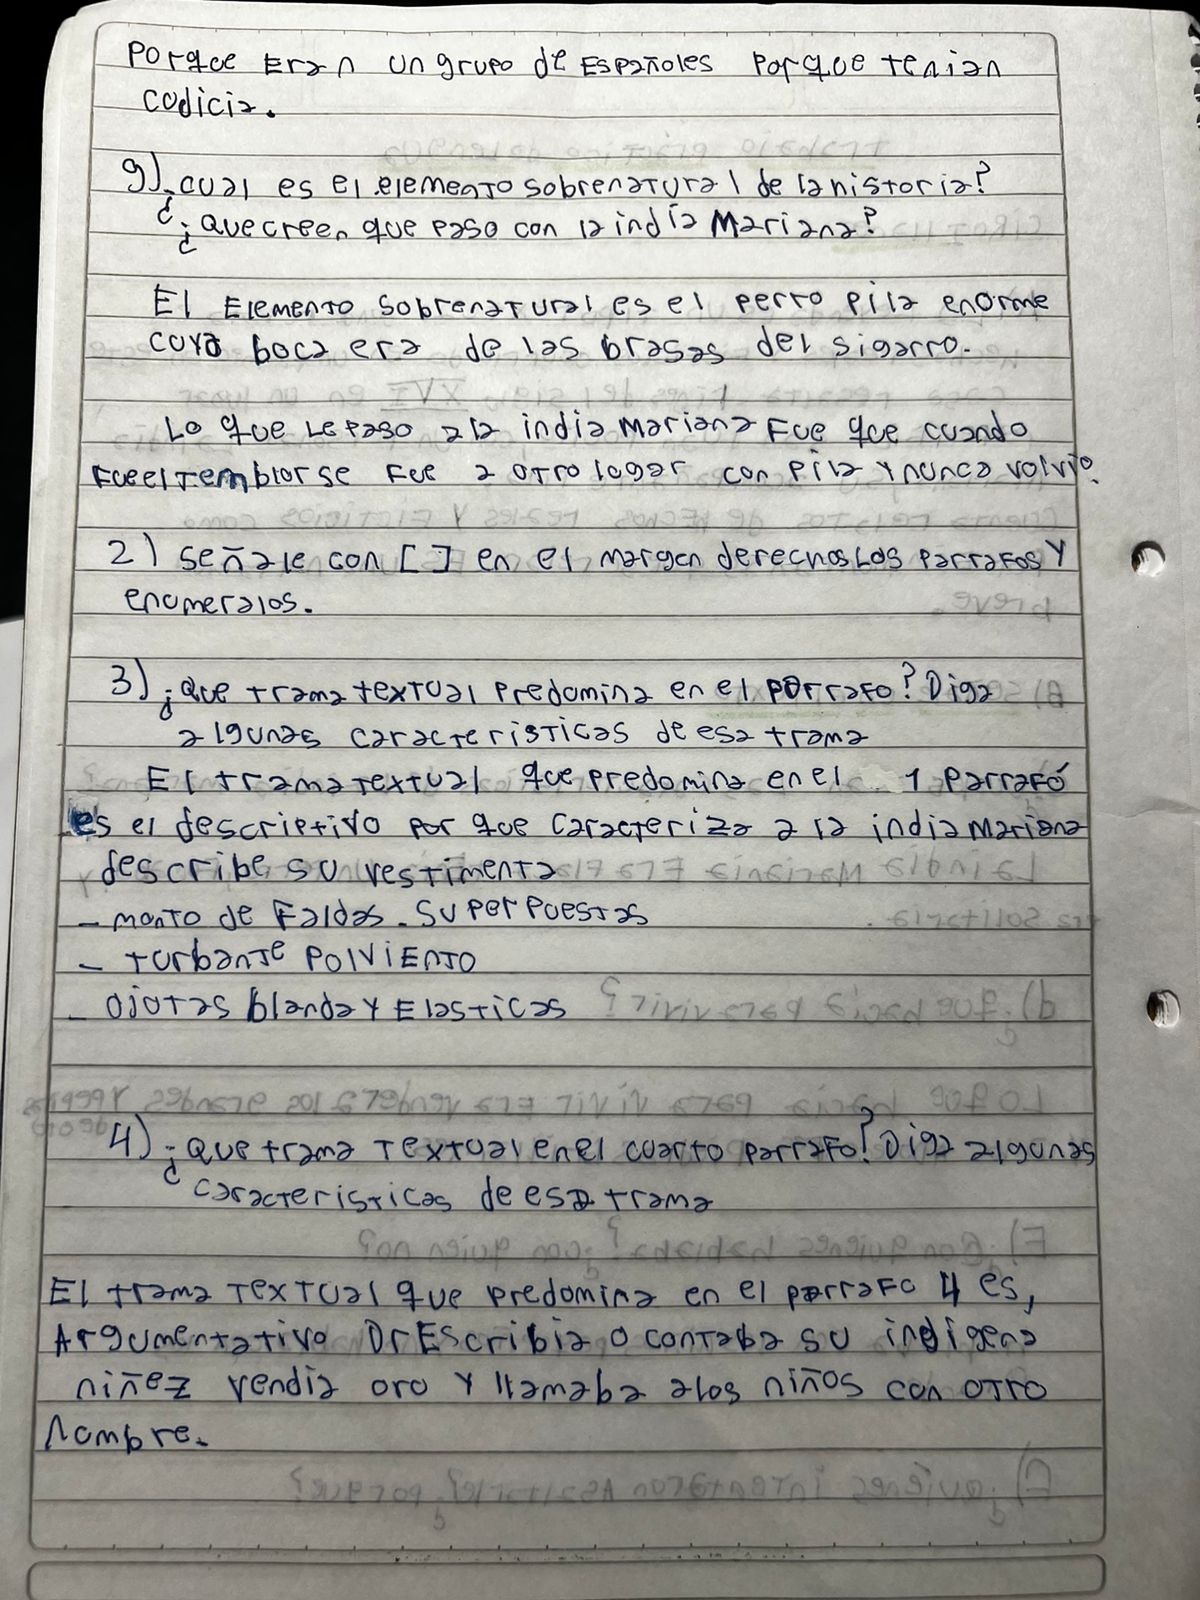 Porque Eran un grupo de Españoles Porque tenian
codicia.
g) ¿cual es el elemento sobrenatural de la historia?
¿Que creen que paso con la india Mariana?
El Elemento sobrenatural es el perro pila enorme
cuya boca era de las brasas del sigarro.
Lo que le paso a la india Mariana Fue que cuando
Fue el Temblor se Fue a otro lugar con Pila Y nunca volvio.
2) señale con [ ] en el margen derechos Los Parrafos Y
enumeralos.
3) ¿Que trama textual Predomina en el parrafo? Diga
algunas caracteristicas de esa trama
El trama textual que predomina en el 1 Parrafó
es el descriptivo por que Caracteriza a la india Mariana
describe su vestimenta
- monto de Faldas. Superpuestas
- turbante Polviento
- Ojotas blanda Y Elasticas
4) ¿Que trama Textual en el cuarto parrafo? Diga algunas
caracteristicas de esa trama
El trama Textual que predomina en el parrafo 4 es,
Argumentativo DrEscribia o contaba su indigena
niñez vendia oro Y llamaba a los niños con otro
nombre.